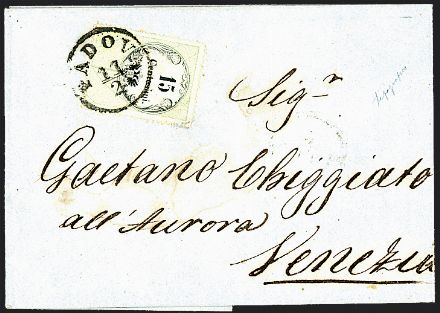 PADOVA
11
2
15
Sig.r
Gaetano Chiggiato
all'Aurora
Venezia